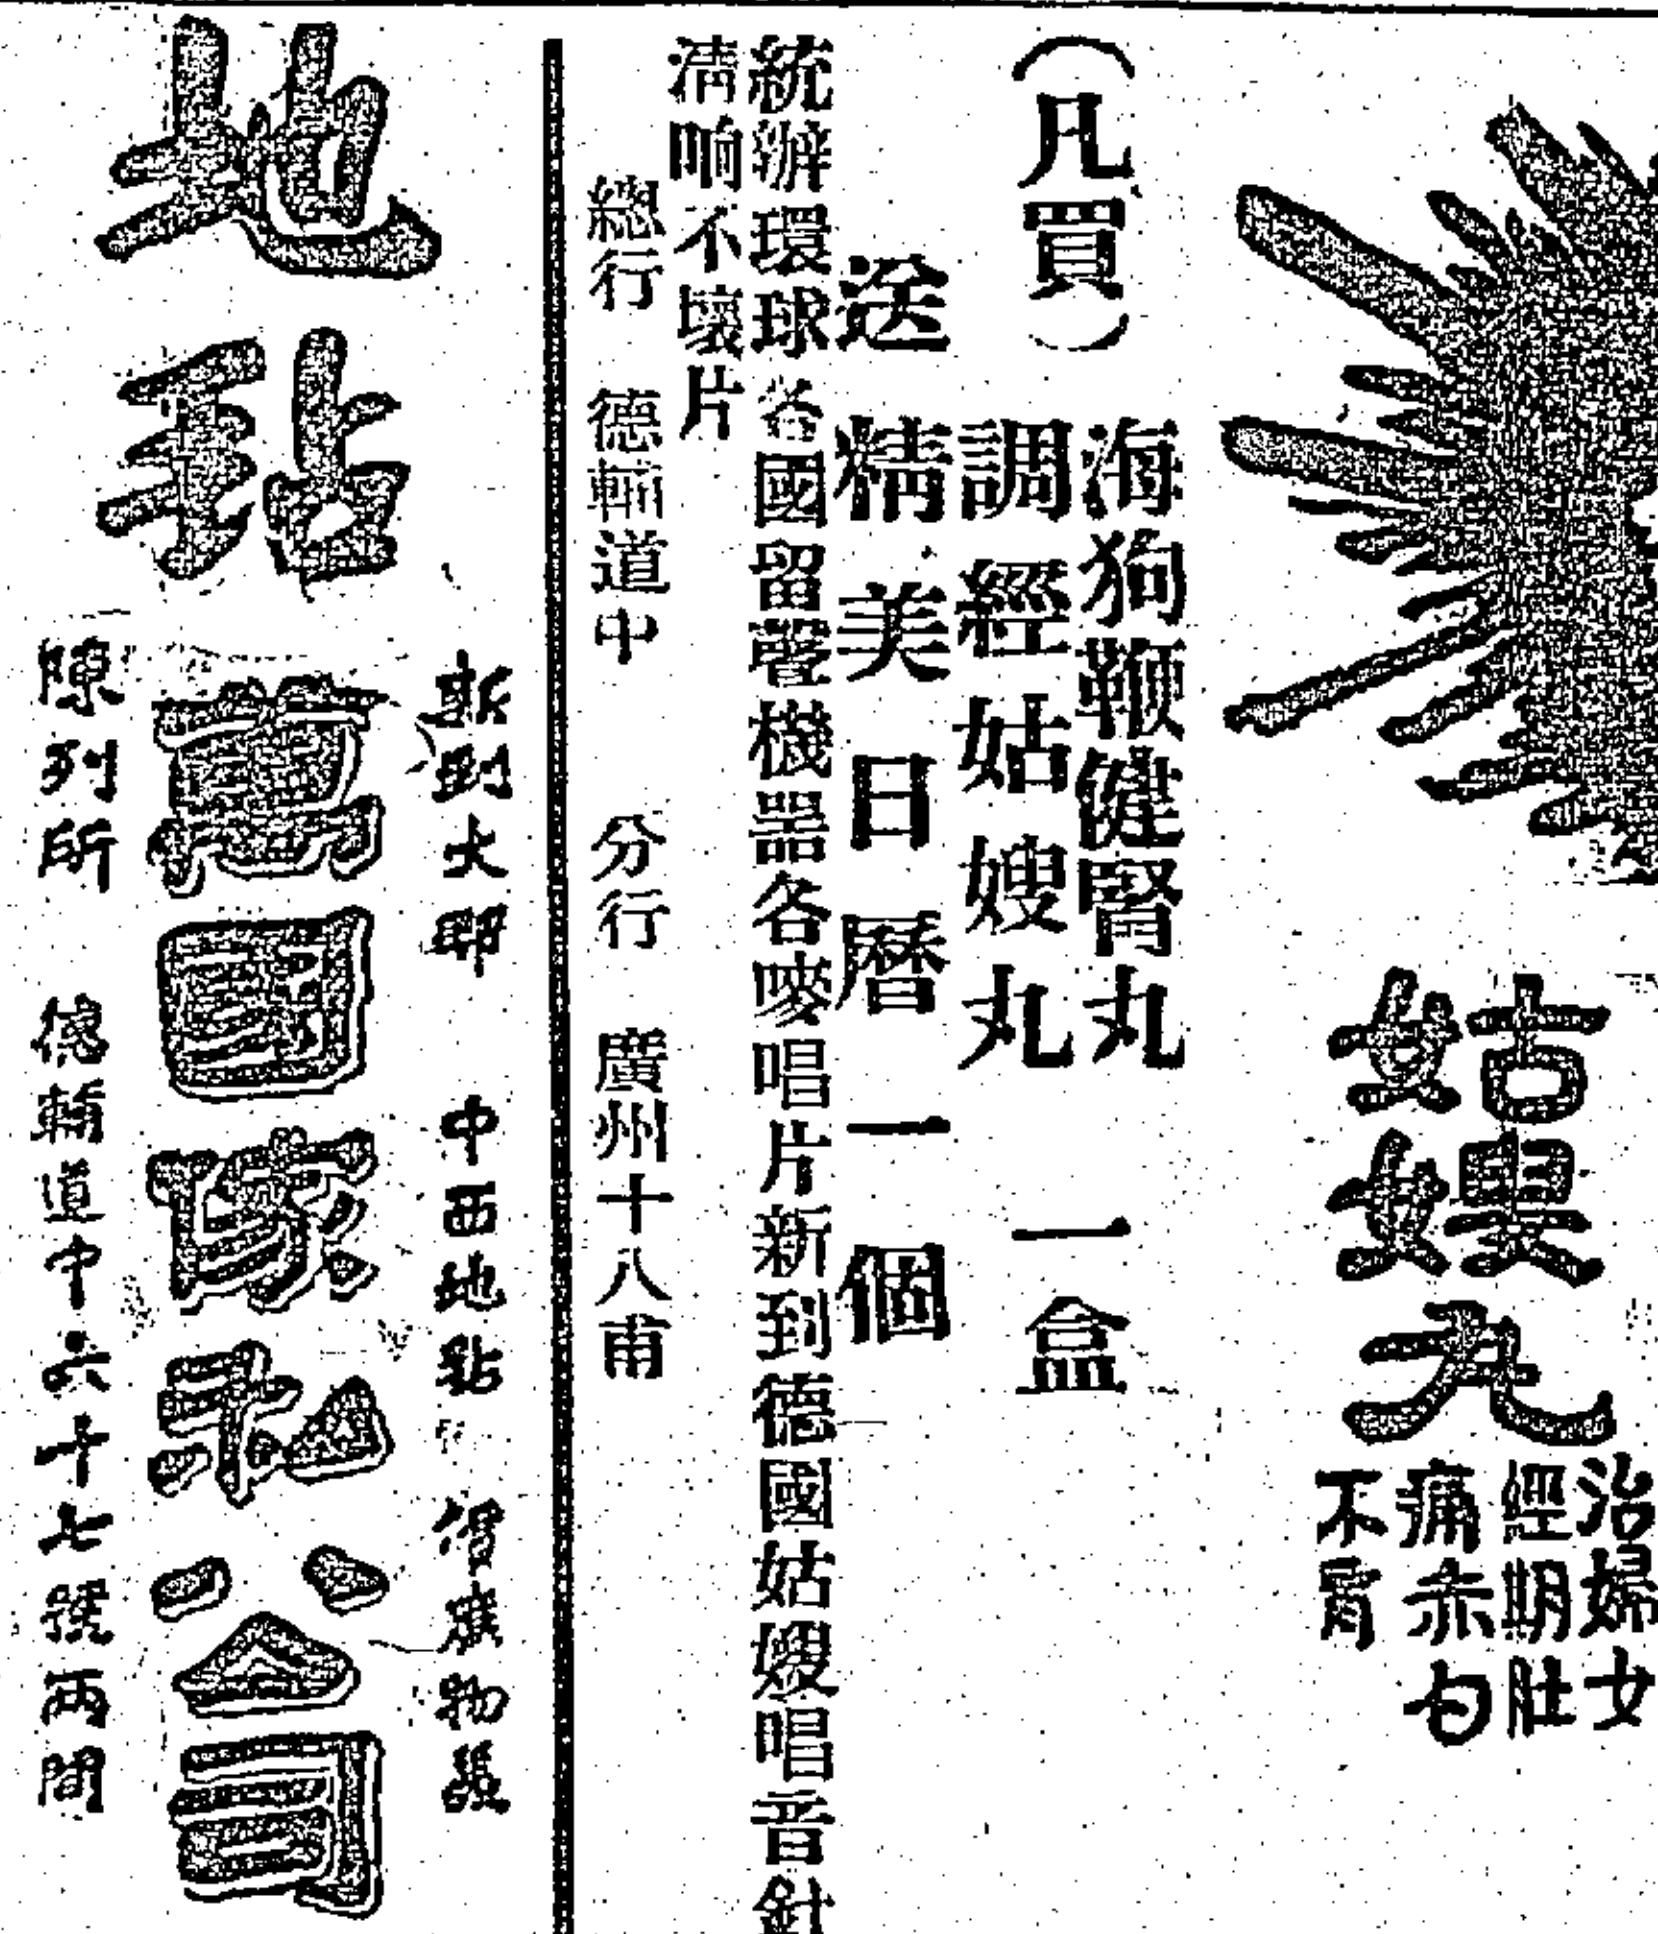 姑嫂丸
治婦女
經期肚
痛赤白
不育
(凡買)
海狗鞭健腎丸
調經姑嫂丸
一盒
送精美日曆一個
統辦環球各國留聲機器各嘜唱片新到德國姑嫂唱音針
清响不壞片
總行 德輔道中 分行 廣州十八甫
新到大帮 中西地毡 傢私物張
地毡
萬國傢私公司
陳列所 德輔道中六十七號兩間